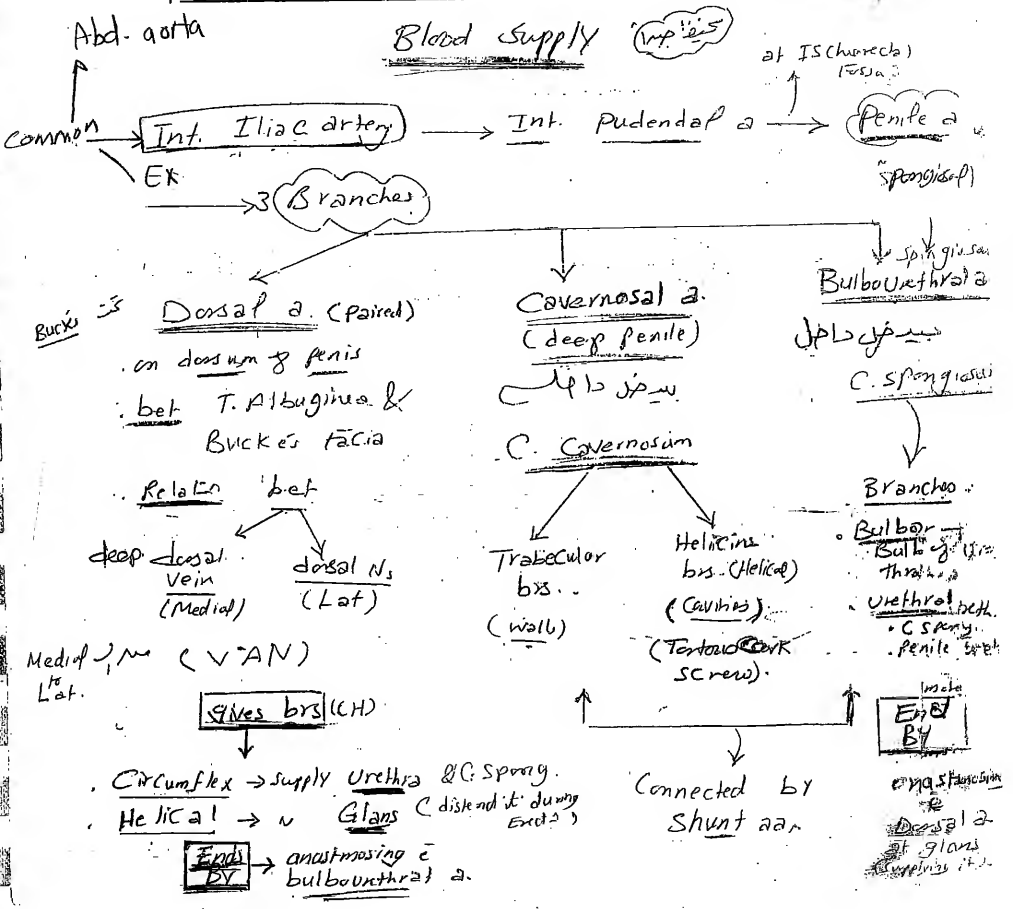 Abd. aorta
Blood Supply
at IS(chiorectal)
Fossa
common
Int. Iliac artery
Int. Pudendal a
Penile a
Ex
3 Branches
Bucks تحت
Dorsal a. (paired)
on dorsum of penis
bet T. Albuginea &
Buck's Facia
Relatn bet
deep dorsal
vein
(Medial)
dorsal Ns
(Lat)
Medial
to
Lat.
(VAN)
gives brs (CH)
Circumflex → supply Urethra & C. Spong.
Helical → ~ Glans (distend it during
Erect)
Ends
BY
anastmosing c̄
bulbourethral a.
Cavernosal a.
(deep penile)
بيدخل داخل
C. Cavernosum
Trabecular
brs..
(wall)
Helicine
brs. (Helical)
(Cavities)
(Tortous Cork
screw).
Connected by
Shunt aa.
Bulbourethral a
بيدخل داخل
C. Spongiosum
Branches
Bulbar
Bulb of
Urethral
C Spong.
penile
End
BY
Dorsal a
at glans
supplying it